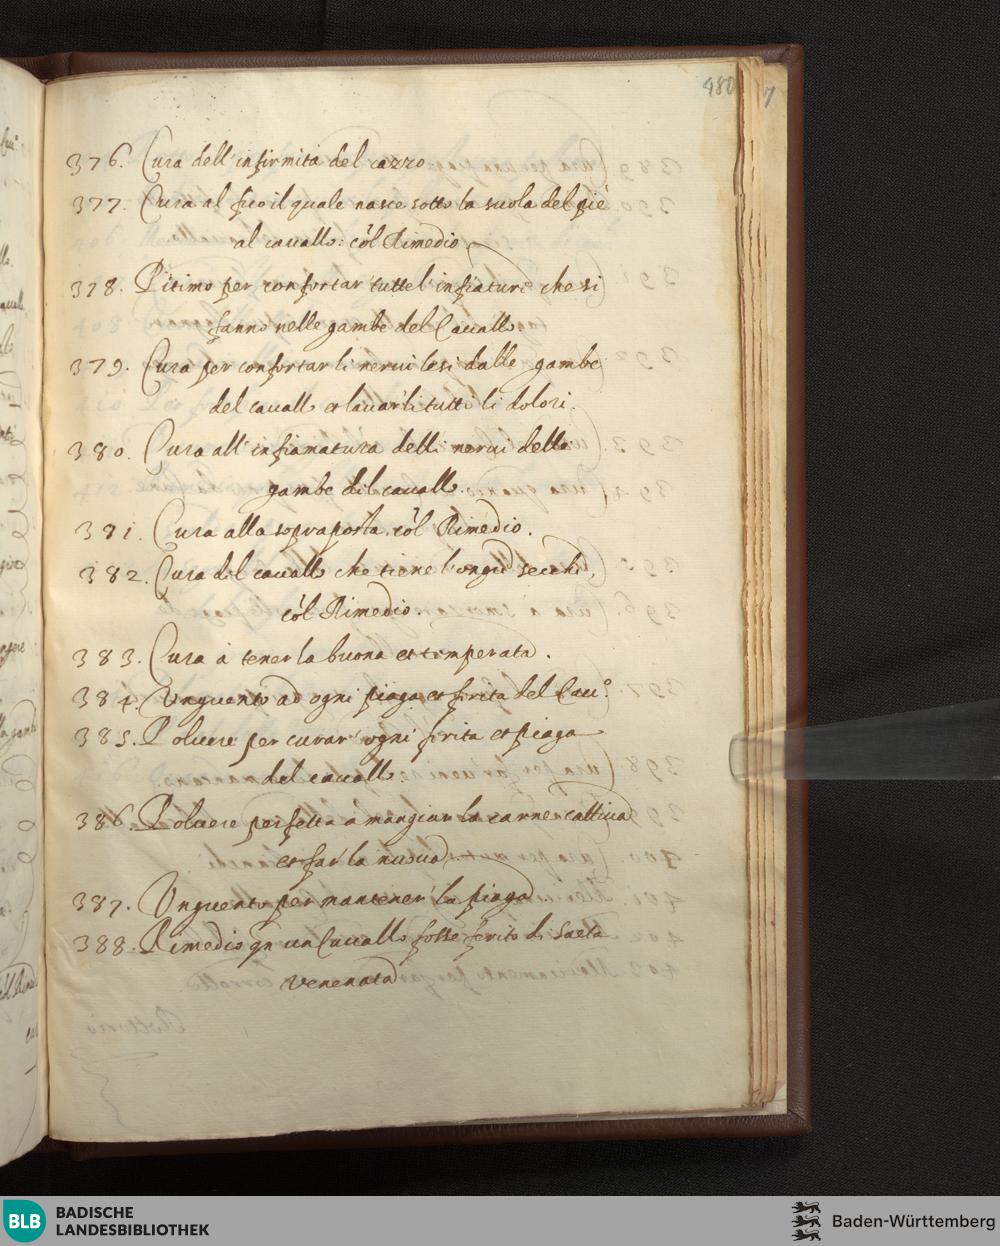 480
7
376. Cura dell'infirmità del cazzo
377. Cura al fico il quale nasce sotto la suola del piè
al cauallo: cól Rimedio
378. Pitimo per confortar tutte l'infiature che si
fanno nelle gambe del Cauallo
379. Cura per confortar li nerui lesi dalle gambe
del cauallo et leuar'li tutti li dolori.
380. Cura all'infiamatura delli nerui delle
gambe del cauallo.
381. Cura alla soprapósta. cól Rimedio.
382. Cura del cauallo che tiene l'ongie secche,
cól Rimedio.
383. Cura à tener la buona et temperata.
384. Unguento ad ogni piaga et ferita del Cau.º
385. Poluere per curar' ogni ferita et piaga
del cauallo.
386. Poluere perfetta à mangiar la carne cattiua
et far la nuoua.
387. Unguento per mantener la piaga
388. Rimedio qn un Cauallo fosse ferito di saeta
venenata
BLB
BADISCHE
LANDESBIBLIOTHEK
Baden-Württemberg